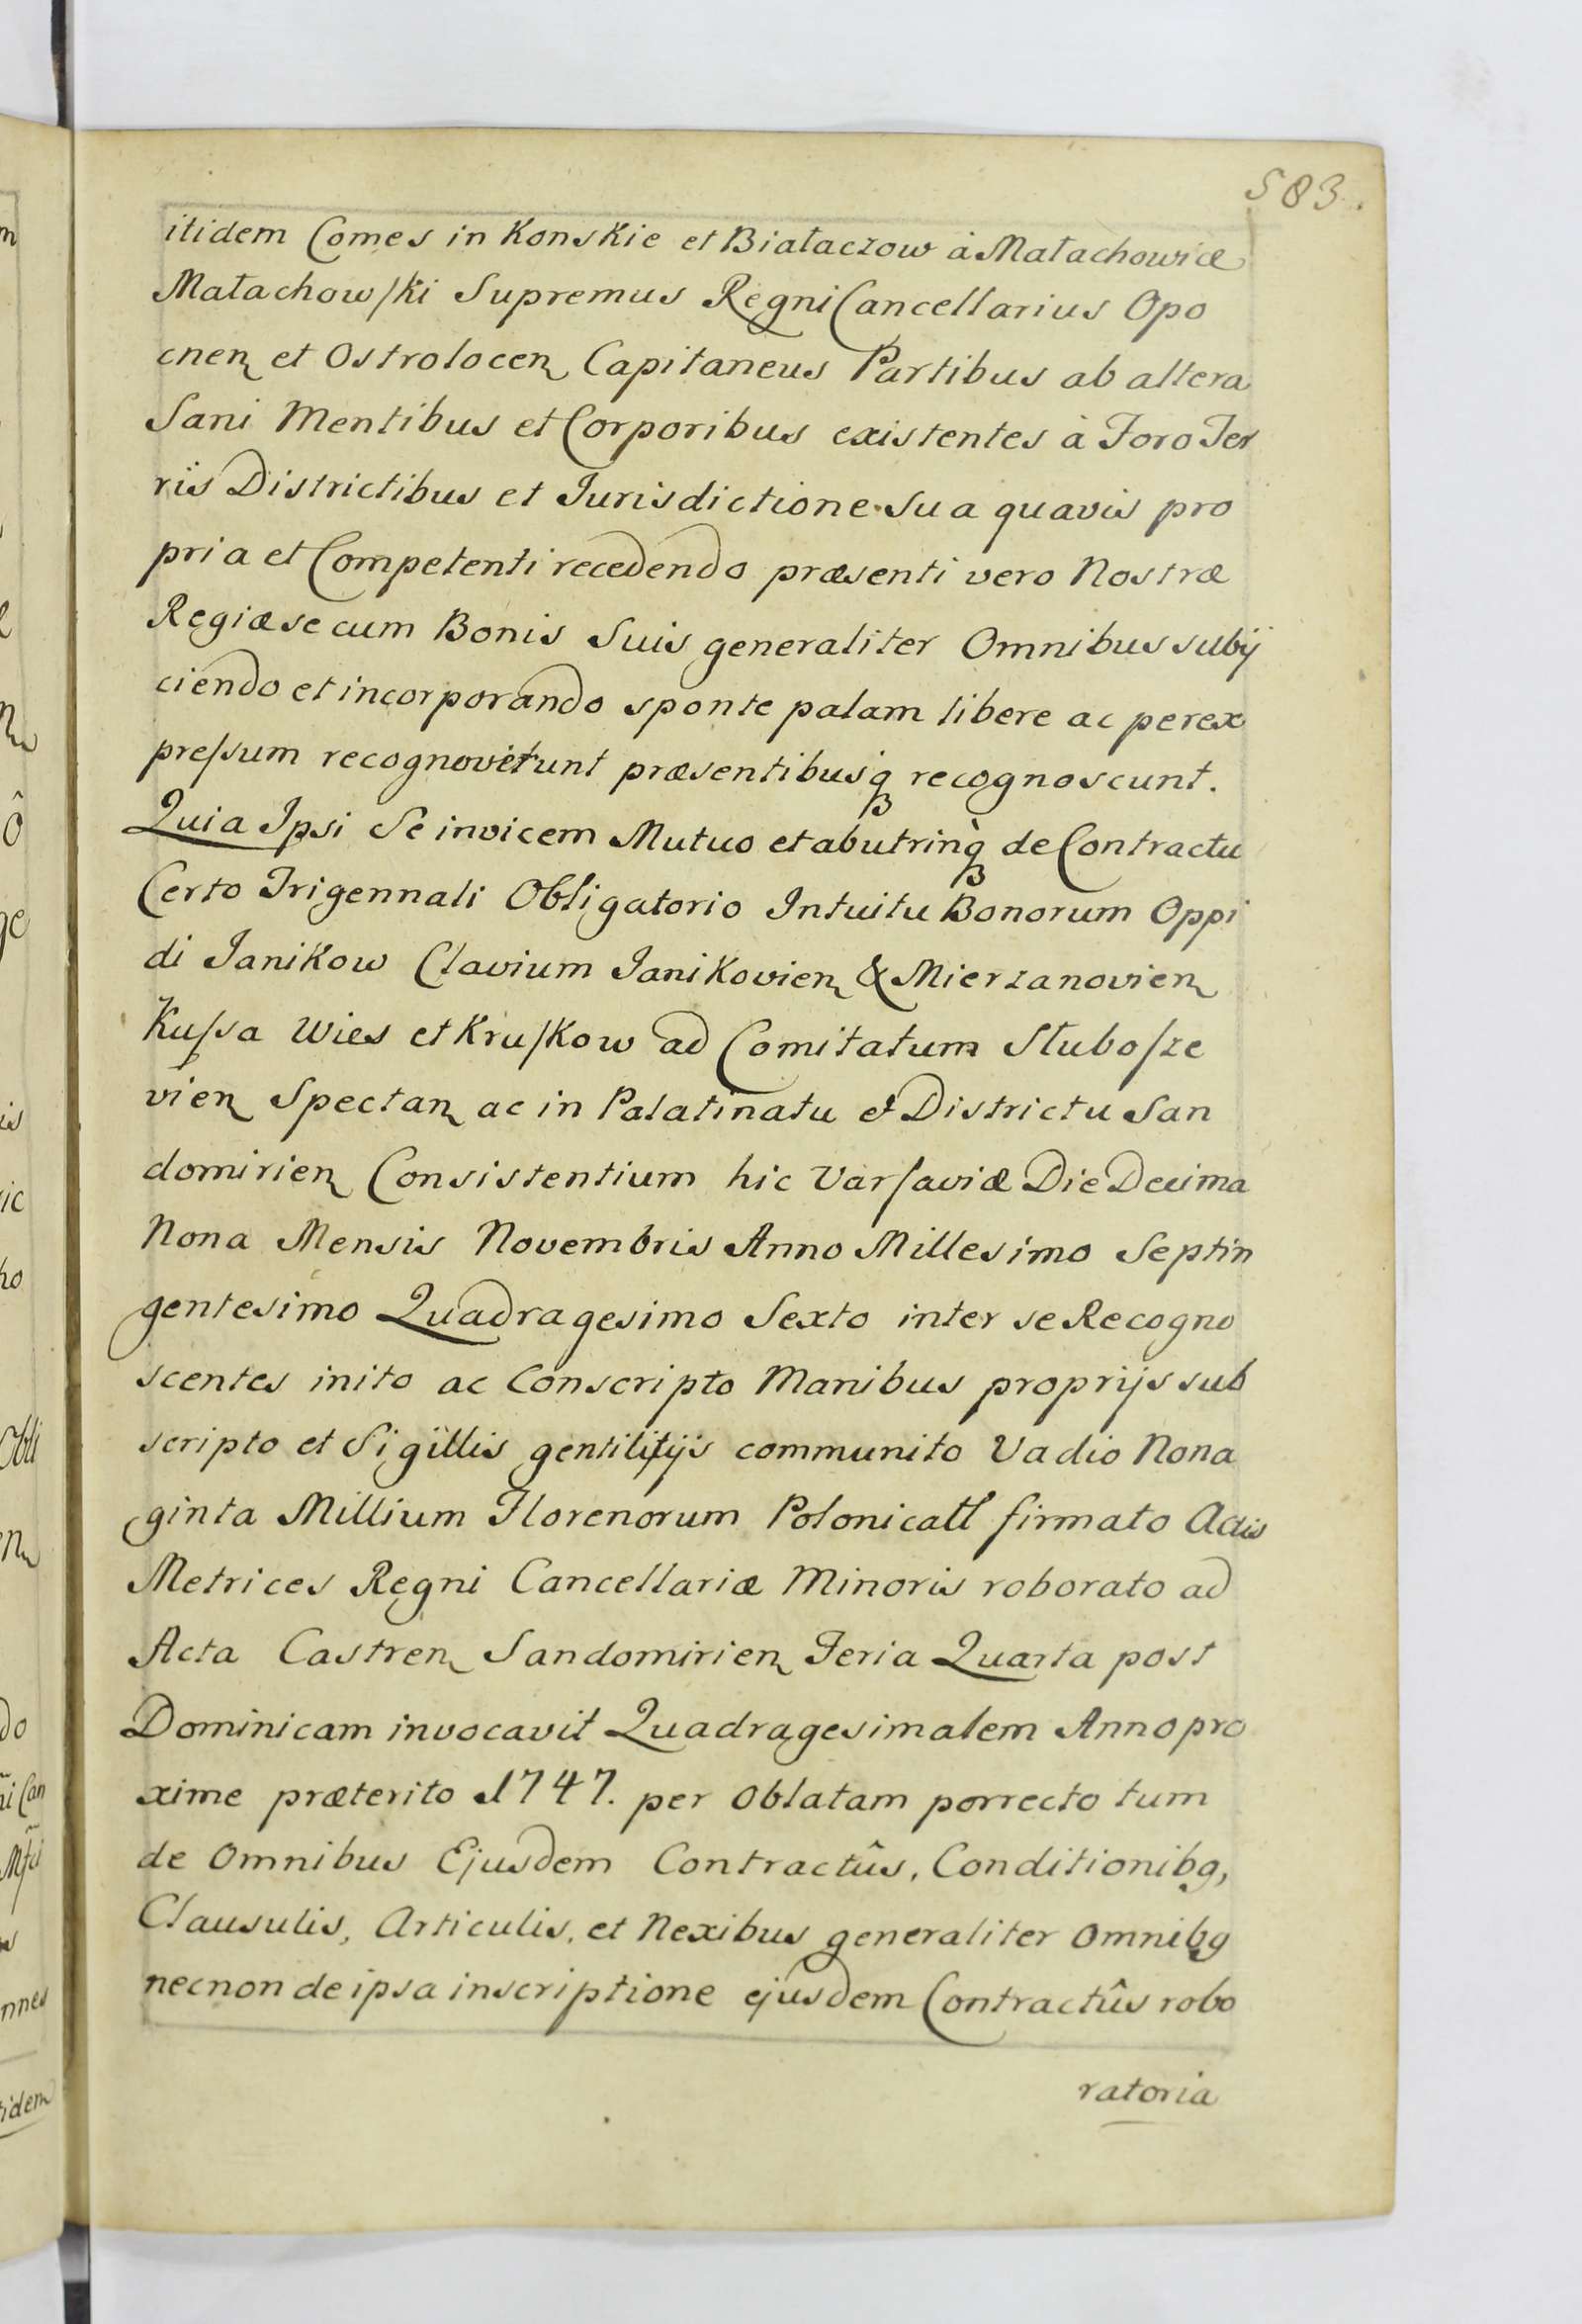 583.
itidem Comes in Konskie et Białaczow à Małachowice
Małachowski Supremus Regni Cancellarius Opo
cnen et Ostrolocen Capitaneus Partibus ab altera
Sani Mentibus et Corporibus existentes à Foro Ter
rïs Districtibus et Jurisdictione Sua quavis pro
pria et Competenti recedendo præsenti vero Nostræ
Regiæ se cum Bonis Suis generaliter Omnibus subij
ciendo et incorporando sponte palam libere ac perex
pressum recognoverunt præsentibusq recognoscunt.
Quia Ipsi Se invicem Mutuo et abutrinq̀ de Contractu
Certo Trigennali Obligatorio Intuitu Bonorum Oppi
di Janikow Clavium Janikovien & Mierzanovien
Kussa Wies et Kruskow ad Comitatum Słubosze
vien Spectan ac in Palatinatu et Districtu San
domirien Consistentium hic Varsaviæ Die Decima
Nona Mensis Novembris Anno Millesimo Septin
gentesimo Quadragesimo Sexto inter se Recogno
scentes inito ac Conscripto Manibus proprijs sub
scripto et Sigillis gentilitijs communito Vadio Nona
ginta Millium Florenorum Polonicall firmato Actis
Metrices Regni Cancellariæ Minoris roborato ad
Acta Castren Sandomirien Feria Quarta post
Dominicam invocavit Quadragesimalem Anno pro
xime præterito 1747. per Oblatam porrecto tum
de Omnibus Ejusdem Contractûs, Conditionibg,
Clausulis, Articulis, et Nexibus generaliter Omnibg
necnon de ipsa inscriptione ejusdem Contractûs robo
ratoria